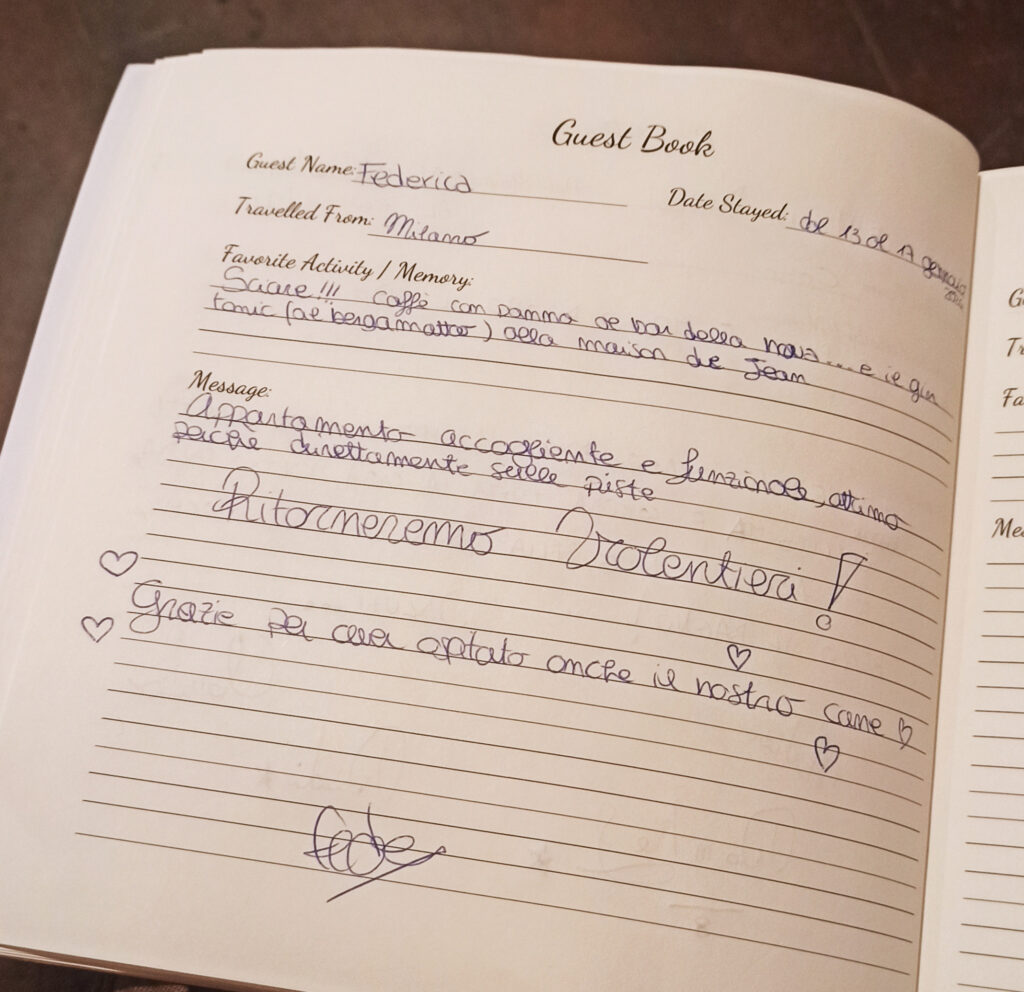 Guest Book
Guest Name: Federica
Date Stayed: dal 13 al 17 gennaio
Travelled From: Milano
Favorite Activity / Memory:
Sciare!!! Caffè con panna al bar della nona.... e il gin
tonic (al bergamotto) alla maison de Jean
Message:
Appartamento accogliente e funzionale, ottimo
perché direttamente sulle piste
Ritorneremo Volentieri!
Grazie per aver optato anche il nostro cane
Fede
G
Tr
Fa
Me